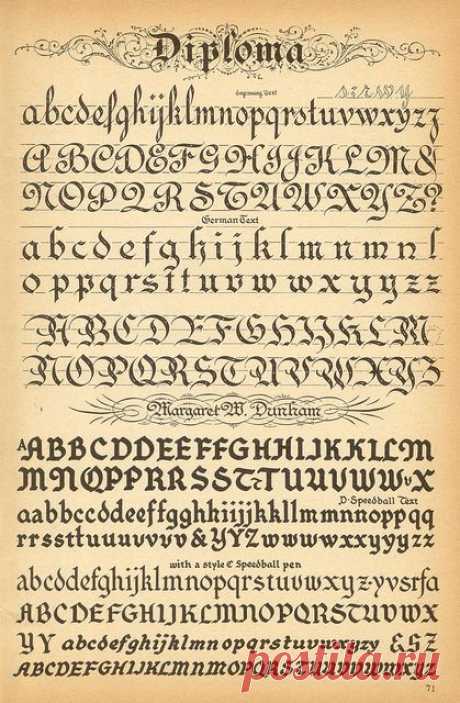 Diploma
Engrossing Text
s z r w y
abcdefghijklmnopqrstuvwxyzz
ABCDEFGHIJKLM&
NOPQRSTUVWXYZ?
German Text
abcdefghijklmnmnl
oppqrsttuvwwxyyzz
ABCDEFGHIJKLM
NOPQRSTUVWXYZ
Margaret W. Dunham
AABBCCDDEEFFGHHIJKKLLM
MNQPPRRSSTTUUVUWWXX
D-Speedball Text
aabbccddeeffgghhiijjkkllmmnnoppqq
rrssttuuuvvv&YYZwwwwxxyyyzz
with a style C Speedball pen
abcdefghijklmnopqrstuvwxyz-yvsrfa
ABCDEFGHIJKLMNOPQRSTUVWX
YY abcdefghijklmnopqrstuvwxyzy &SZ
ABCDEFGHIJKLMNMOPQRSTUVWXYZ
71
postila.ru